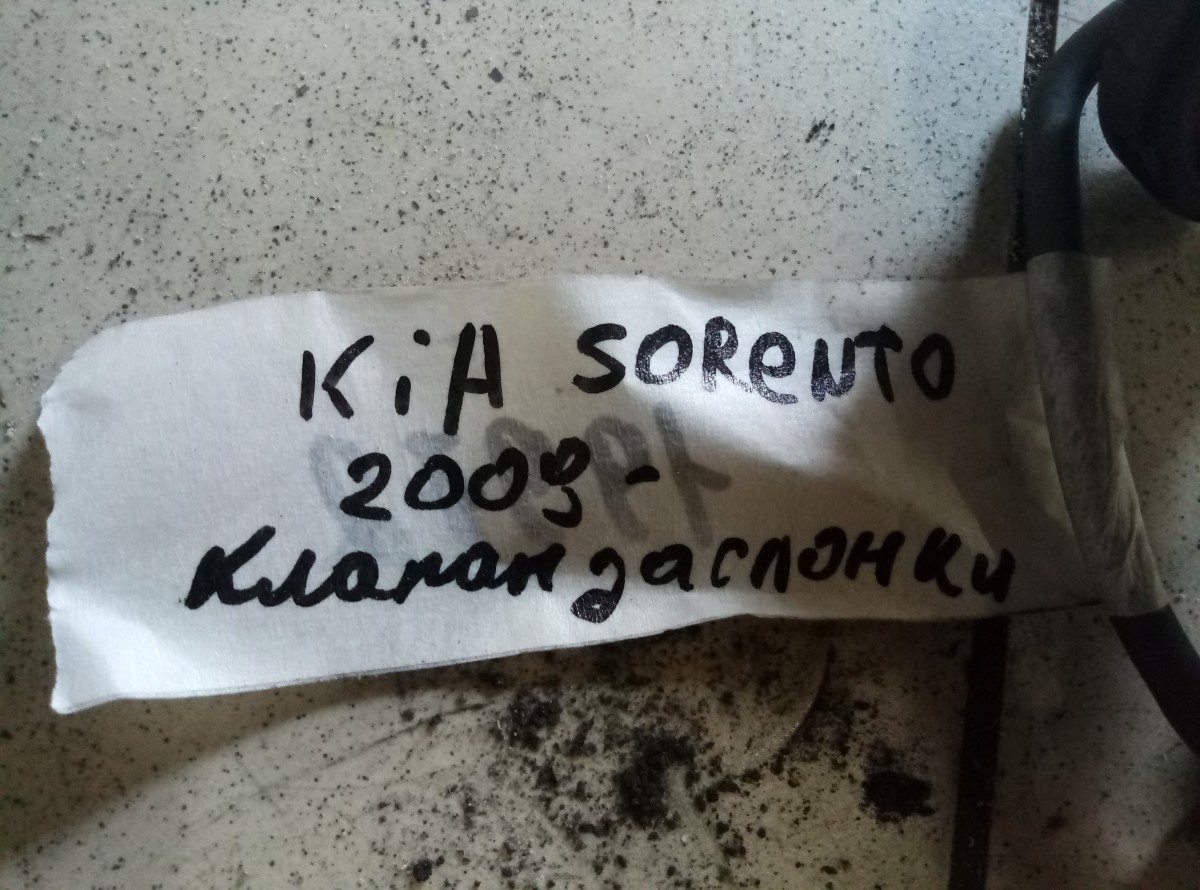 KiA SORENTO
2009-
Клапан заслонки